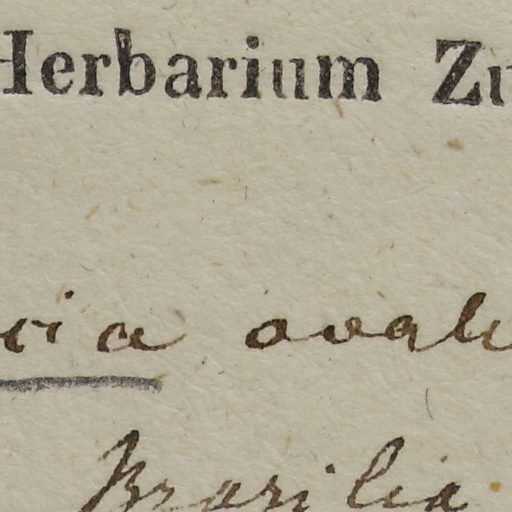 Herbarium Zu
cia oval
Brasilia